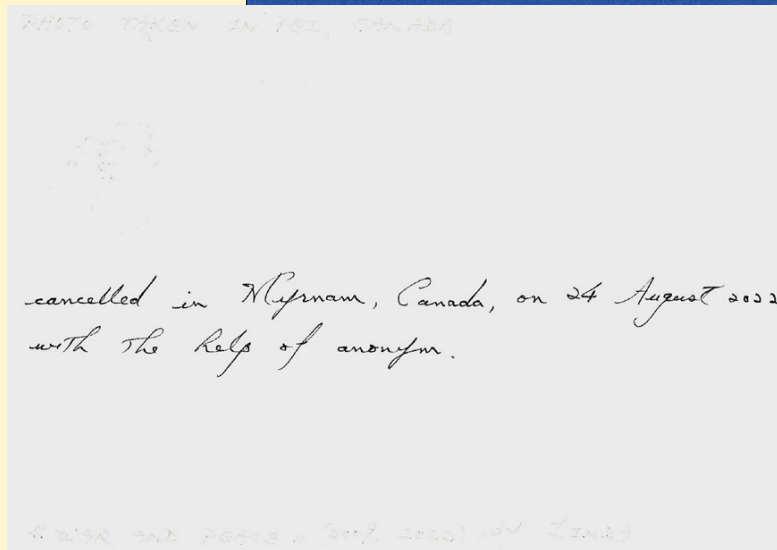 PHOTO TAKEN IN PEI, CANADA
cancelled in Myrnam, Canada, on 24 August 2022
with the help of anonym.
WAR AND PEACE (2022) BY